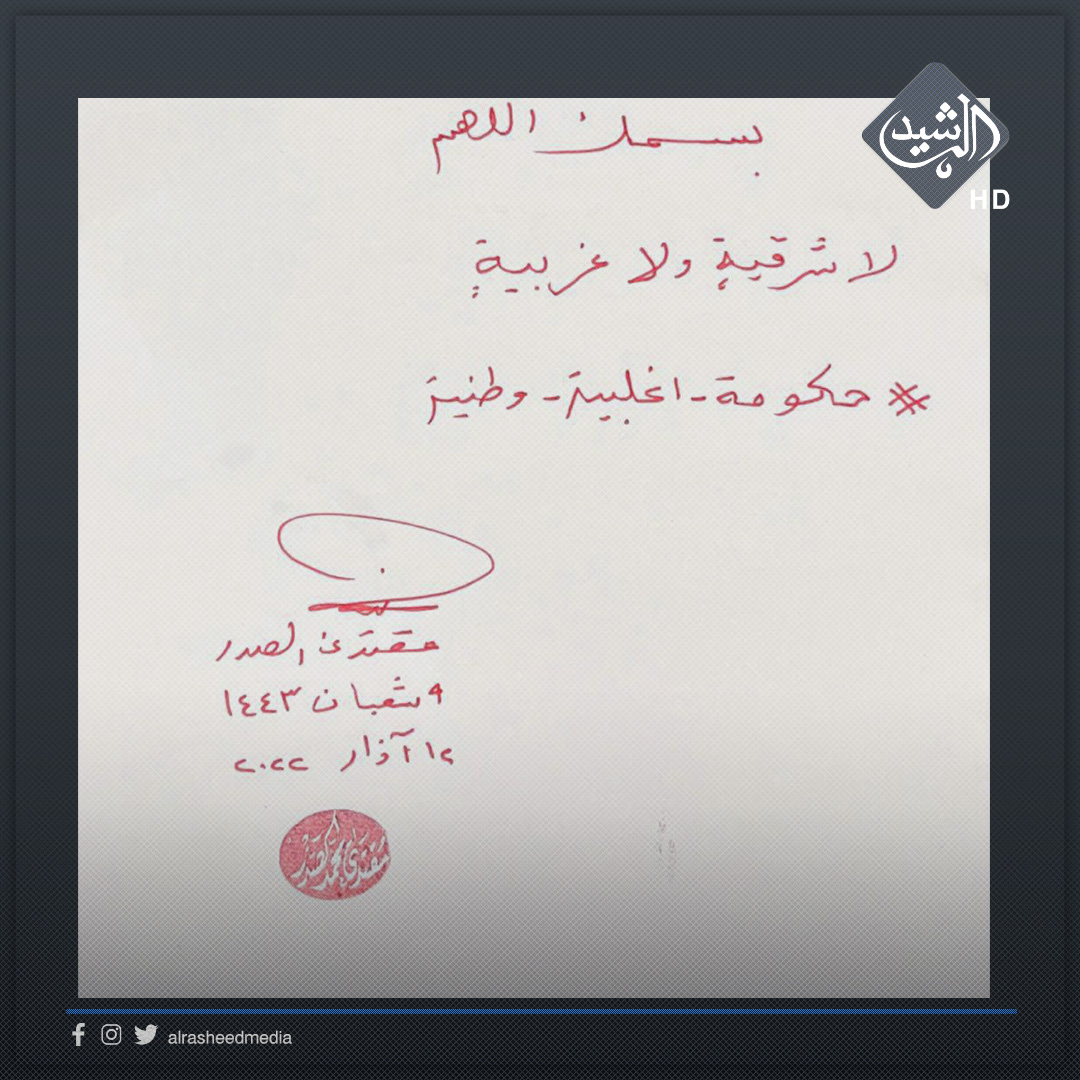 الرشيد
HD
بسمك اللهم
لا شرقيةٍ ولا غربيةٍ
# حكومة - اغلبية - وطنية
مقتدى الصدر
٩ شعبان ١٤٤٣
١٢ آذار ٢٠٢٢
مقتدى محمد الصدر
alrasheedmedia